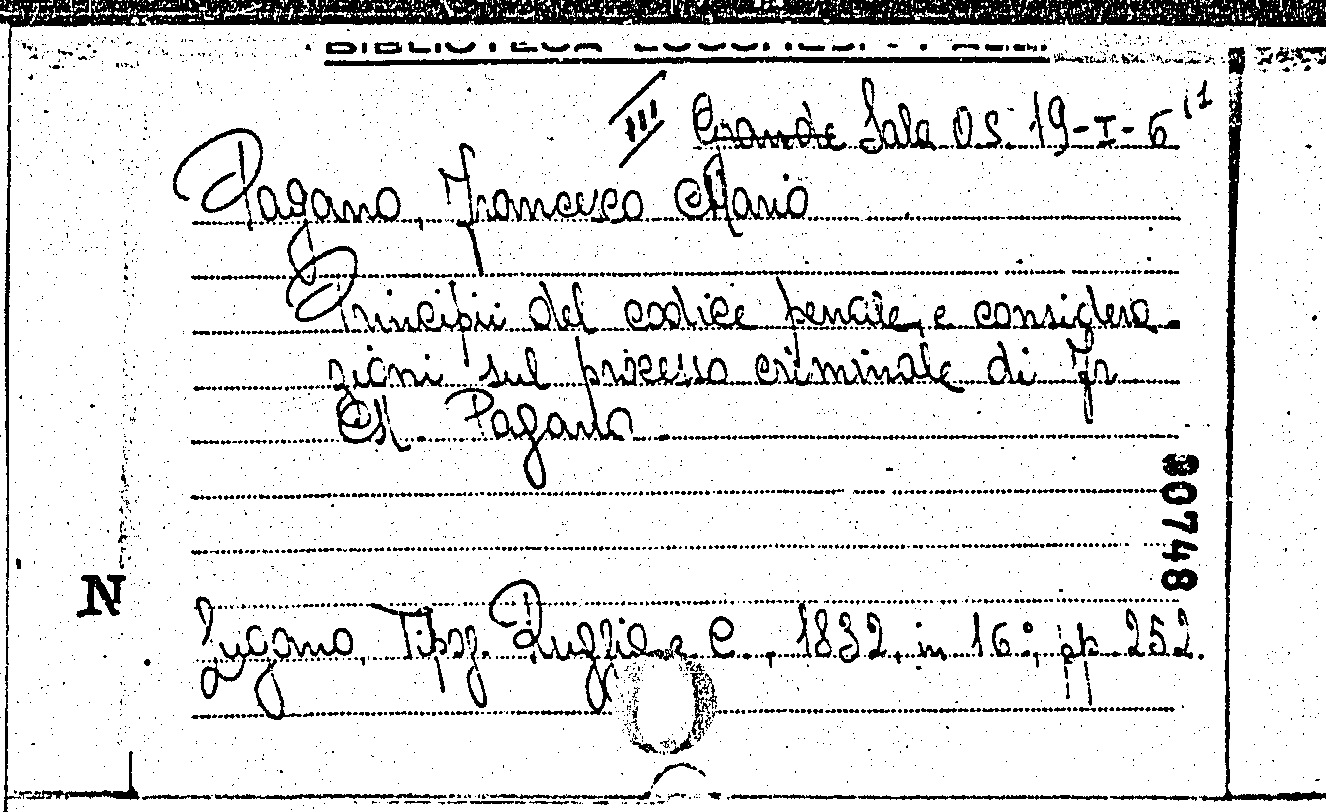 BIBLIOTECA LUCCHESI - PALLI
III Grande Sala O.S. 19-I-6 11
Pagano, Francesco Mario
Principii del codice penale, e considera
zioni sul processo criminale di Fr
M. Pagano
80748
N
Lugano, Tipog. Ruggia e C., 1832, in 16°, pp. 252.